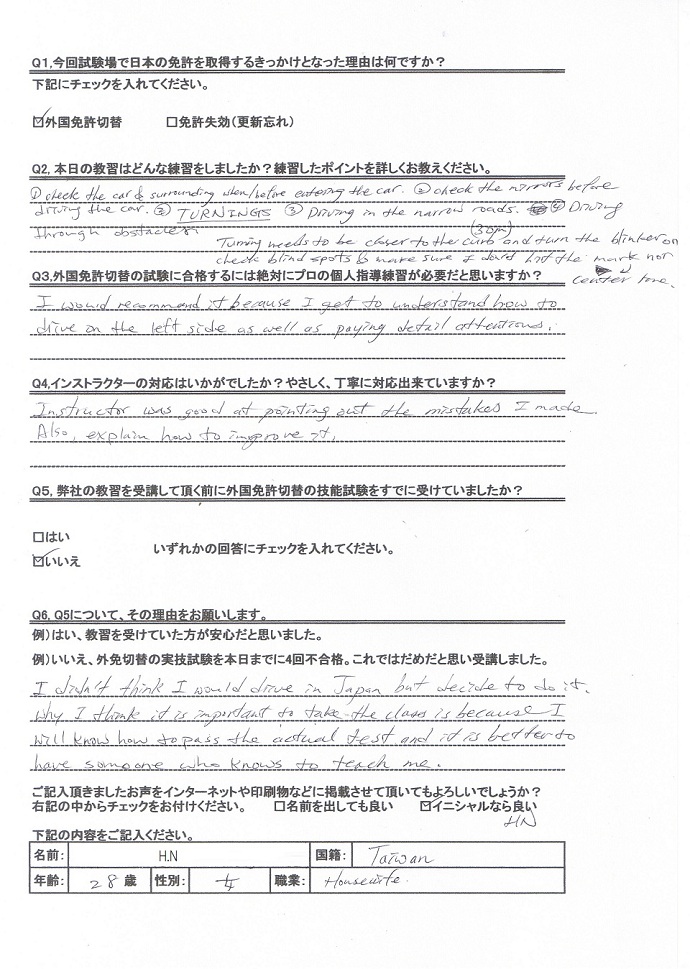 Q1,今回試験場で日本の免許を取得するきっかけとなった理由は何ですか？
下記にチェックを入れてください。
☑外国免許切替 □免許失効(更新忘れ)
Q2, 本日の教習はどんな練習をしましたか？練習したポイントを詳しくお教えください。
① check the car & surrounding when/before entering the car. ② check the mirrors before
driving the car. ② TURNINGS ③ Driving in the narrow roads. ④ Driving
through obstacles
(30cm)
Turning needs to be closer to the curb and turn the blinker on
check blind spots to make sure I don't hit the mark nor
center line.
Q3.外国免許切替の試験に合格するには絶対にプロの個人指導練習が必要だと思いますか？
I would recommend it because I get to understand how to
drive on the left side as well as paying detail attentions.
Q4,インストラクターの対応はいかがでしたか？やさしく、丁寧に対応出来ていますか？
Instructor was good at pointing out the mistakes I made.
Also, explain how to improve it.
Q5, 弊社の教習を受講して頂く前に外国免許切替の技能試験をすでに受けていましたか？
□はい
☑いいえ
いずれかの回答にチェックを入れてください。
Q6, Q5について、その理由をお願いします。
例)はい、教習を受けていた方が安心だと思いました。
例)いいえ、外免切替の実技試験を本日までに4回不合格。これではだめだと思い受講しました。
I didn't think I would drive in Japan but decide to do it.
Why I think it is important to take the class is because I
will know how to pass the actual test and it is better to
have someone who knows to teach me.
ご記入頂きましたお声をインターネットや印刷物などに掲載させて頂いてもよろしいでしょうか？
右記の中からチェックをお付けください。 □名前を出しても良い ☑イニシャルなら良い
HN
下記の内容をご記入ください。
名前: H.N 国籍: Taiwan
年齢: 28 歳 性別: 女 職業: Housewife.